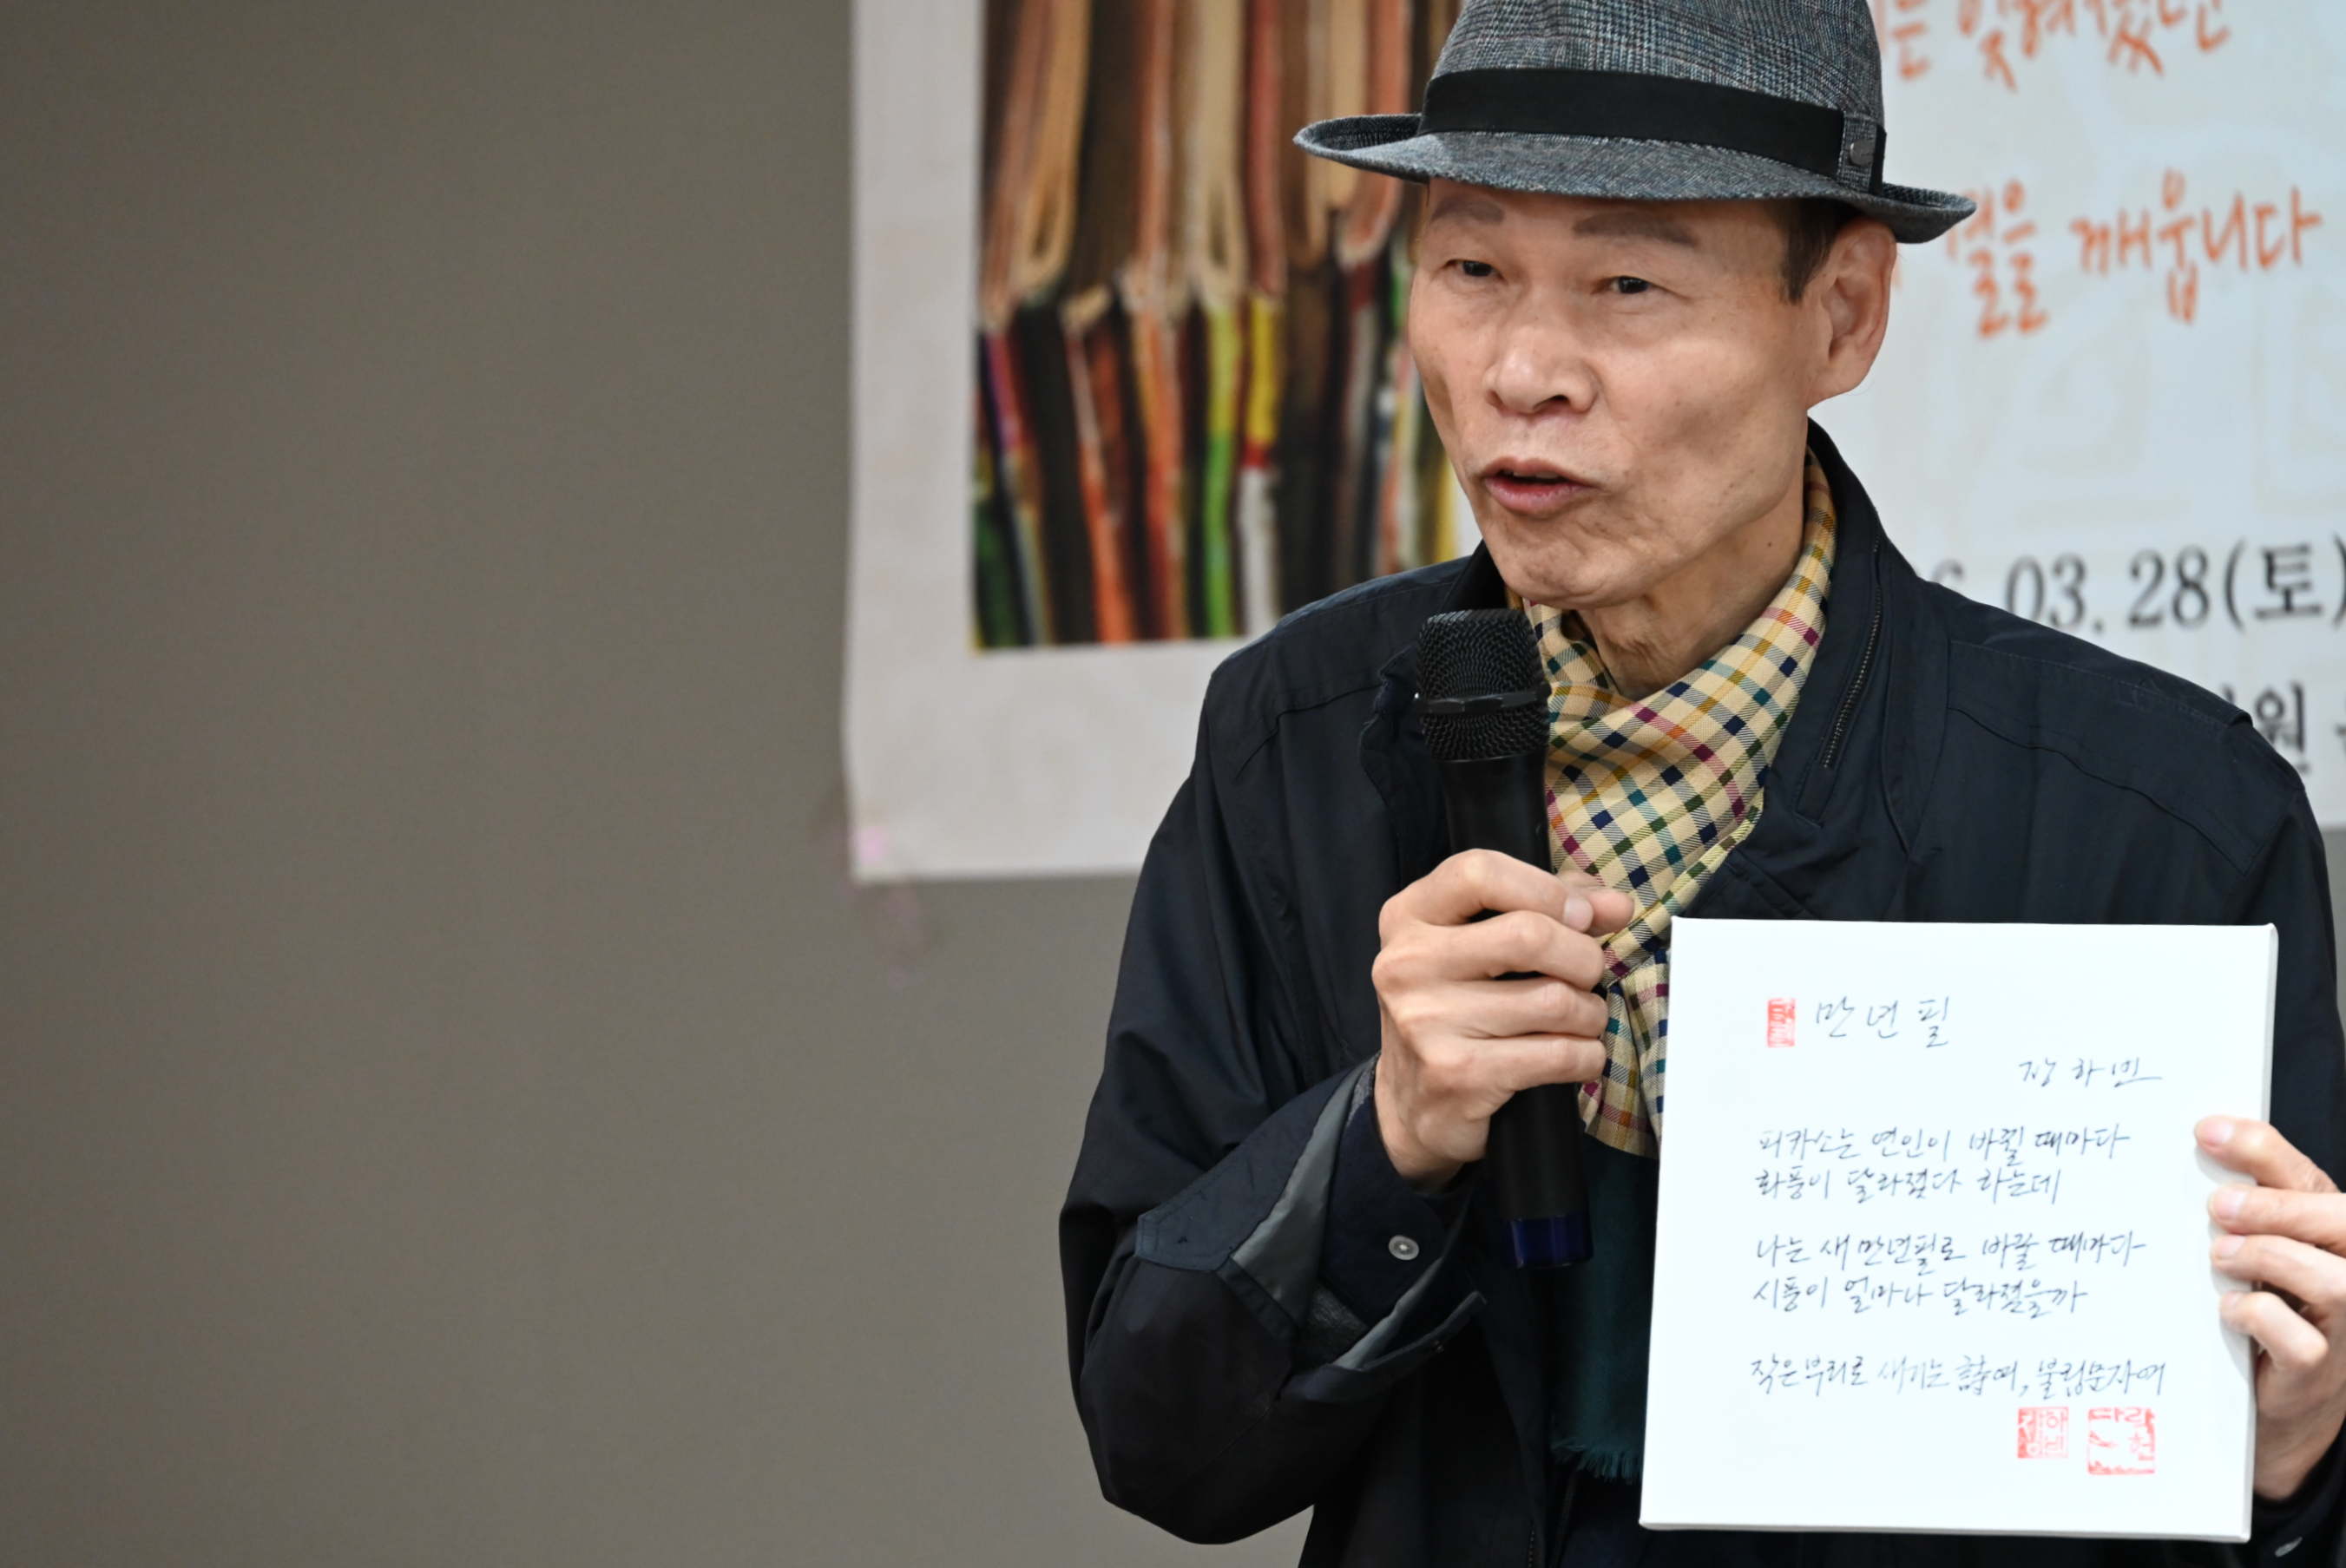 잊혀졌던
결을 깨웁니다
03. 28(토)
원
만년필
장하빈
피카소는 연인이 바뀔 때마다
화풍이 달라졌다 하는데
나는 새 만년필로 바꿀 때마다
시풍이 얼마나 달라졌을까
작은 부리로 새기는 詩여, 불립문자여
장하빈
다락헌